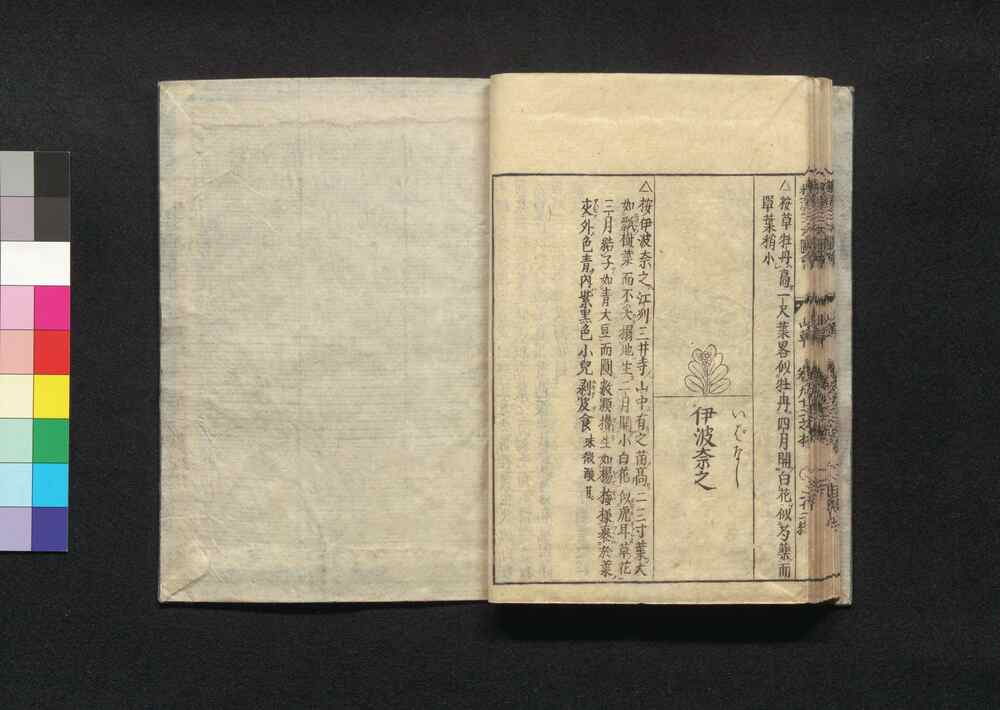 △按草牡丹高一尺葉畧似牡丹四月開白花似芍藥而
單葉稍小
いばなし
伊波奈之
△按伊波奈之江列三井寺山中有之苗高二三寸葉大
如瓢樹葉而不尖搨地生二月開小白花似虎耳草花
三月結子如青大豆而圓數顆攅生如楊梅樣裹於葉
夾外色青内紫黒色小兒剥皮食味微酸甚